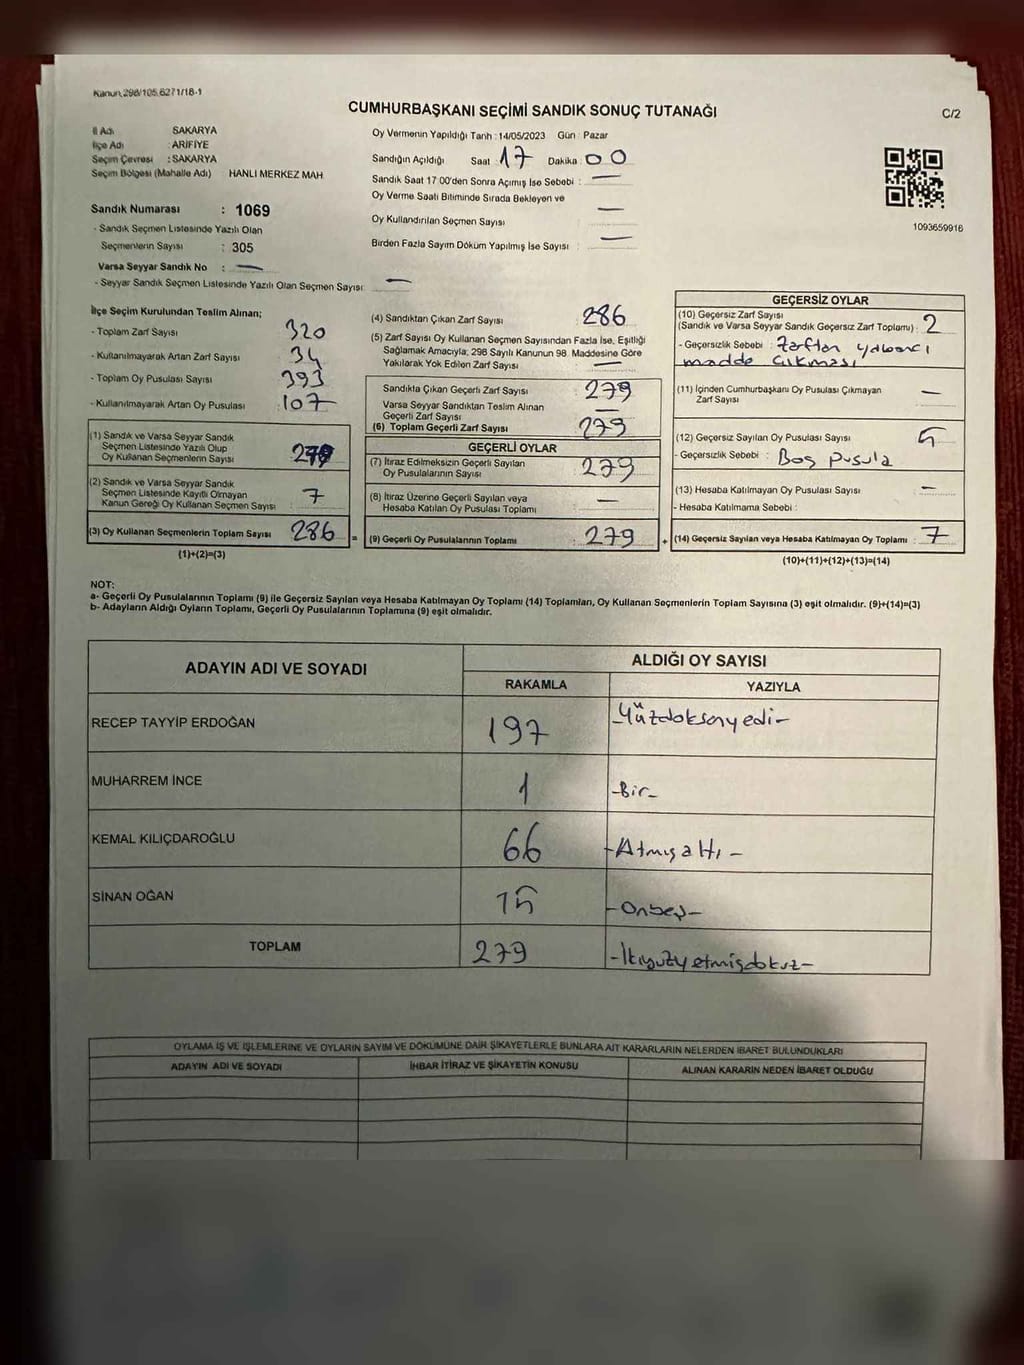 Kanun,298/105.6271/18-1
CUMHURBAŞKANI SEÇİMİ SANDIK SONUÇ TUTANAĞI
C/2
İl Adı SAKARYA
İlçe Adı : ARİFİYE
Seçim Çevresi : SAKARYA
Seçim Bölgesi (Mahalle Adı) HANLI MERKEZ MAH.
Oy Vermenin Yapıldığı Tarih : 14/05/2023 Gün : Pazar
Sandığın Açıldığı Saat 17 Dakika : 00
Sandık Saat 17:00'den Sonra Açımış İse Sebebi : —
Oy Verme Saati Bitiminde Sırada Bekleyen ve
Oy Kullandırılan Seçmen Sayısı —
Birden Fazla Sayım Döküm Yapılmış İse Sayısı : —
1093659916
Sandık Numarası : 1069
- Sandık Seçmen Listesinde Yazılı Olan
Seçmenlerin Sayısı : 305
Varsa Seyyar Sandık No : —
- Seyyar Sandık Seçmen Listesinde Yazılı Olan Seçmen Sayısı: —
İlçe Seçim Kurulundan Teslim Alınan;
- Toplam Zarf Sayısı 320
- Kullanılmayarak Artan Zarf Sayısı : 34
- Toplam Oy Pusulası Sayısı : 393
- Kullanılmayarak Artan Oy Pusulası : 107
(1) Sandık ve Varsa Seyyar Sandık
Seçmen Listesinde Yazılı Olup
Oy Kullanan Seçmenlerin Sayısı 279
(2) Sandık ve Varsa Seyyar Sandık
Seçmen Listesinde Kayıtlı Olmayan
Kanun Gereği Oy Kullanan Seçmen Sayısı : 7
(3) Oy Kullanan Seçmenlerin Toplam Sayısı 286
(1)+(2)=(3)
(4) Sandıktan Çıkan Zarf Sayısı 286
(5) Zarf Sayısı Oy Kullanan Seçmen Sayısından Fazla İse, Eşitliği
Sağlamak Amacıyla, 298 Sayılı Kanunun 98. Maddesine Göre
Yakılarak Yok Edilen Zarf Sayısı —
Sandıkta Çıkan Geçerli Zarf Sayısı : 279
Varsa Seyyar Sandıktan Teslim Alınan
Geçerli Zarf Sayısı —
(6) Toplam Geçerli Zarf Sayısı 279
GEÇERLİ OYLAR
(7) İtiraz Edilmeksizin Geçerli Sayılan
Oy Pusulalarının Sayısı 279
(8) İtiraz Üzerine Geçerli Sayılan veya
Hesaba Katılan Oy Pusulası Toplamı —
= (9) Geçerli Oy Pusulalarının Toplamı : 279 +
GEÇERSİZ OYLAR
(10) Geçersiz Zarf Sayısı
(Sandık ve Varsa Seyyar Sandık Geçersiz Zarf Toplamı) : 2
- Geçersizlik Sebebi : Zarftan yabancı
madde çıkması
(11) İçinden Cumhurbaşkanı Oy Pusulası Çıkmayan
Zarf Sayısı —
(12) Geçersiz Sayılan Oy Pusulası Sayısı 5
- Geçersizlik Sebebi : Boş pusula
(13) Hesaba Katılmayan Oy Pusulası Sayısı —
- Hesaba Katılmama Sebebi :
(14) Geçersiz Sayılan veya Hesaba Katılmayan Oy Toplamı : 7
(10)+(11)+(12)+(13)=(14)
NOT:
a- Geçerli Oy Pusulalarının Toplamı (9) ile Geçersiz Sayılan veya Hesaba Katılmayan Oy Toplamı (14) Toplamları, Oy Kullanan Seçmenlerin Toplam Sayısına (3) eşit olmalıdır. (9)+(14)=(3)
b- Adayların Aldığı Oyların Toplamı, Geçerli Oy Pusulalarının Toplamına (9) eşit olmalıdır.
ADAYIN ADI VE SOYADI ALDIĞI OY SAYISI
RAKAMLA YAZIYLA
RECEP TAYYİP ERDOĞAN 197 -Yüzdoksanyedi-
MUHARREM İNCE 1 -Bir-
KEMAL KILIÇDAROĞLU 66 -Atmışaltı-
SİNAN OĞAN 15 -Onbeş-
TOPLAM 279 -İkiyüzyetmişdokuz-
OYLAMA İŞ VE İŞLEMLERİNE VE OYLARIN SAYIM VE DÖKÜMÜNE DAİR ŞİKAYETLERLE BUNLARA AİT KARARLARIN NELERDEN İBARET BULUNDUKLARI
ADAYIN ADI VE SOYADI İHBAR İTİRAZ VE ŞİKAYETİN KONUSU ALINAN KARARIN NEDEN İBARET OLDUĞU